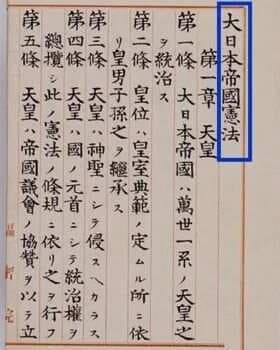 大日本帝國憲法
第一章　天皇
第一條　大日本帝國ハ萬世一系ノ天皇之
ヲ統治ス
第二條　皇位ハ皇室典範ノ定ムル所ニ依
リ皇男子孫之ヲ繼承ス
第三條　天皇ハ神聖ニシテ侵スヘカラス
第四條　天皇ハ國ノ元首ニシテ統治權ヲ
總攬シ此ノ憲法ノ條規ニ依リ之ヲ行フ
第五條　天皇ハ帝國議會ノ協贊ヲ以テ立